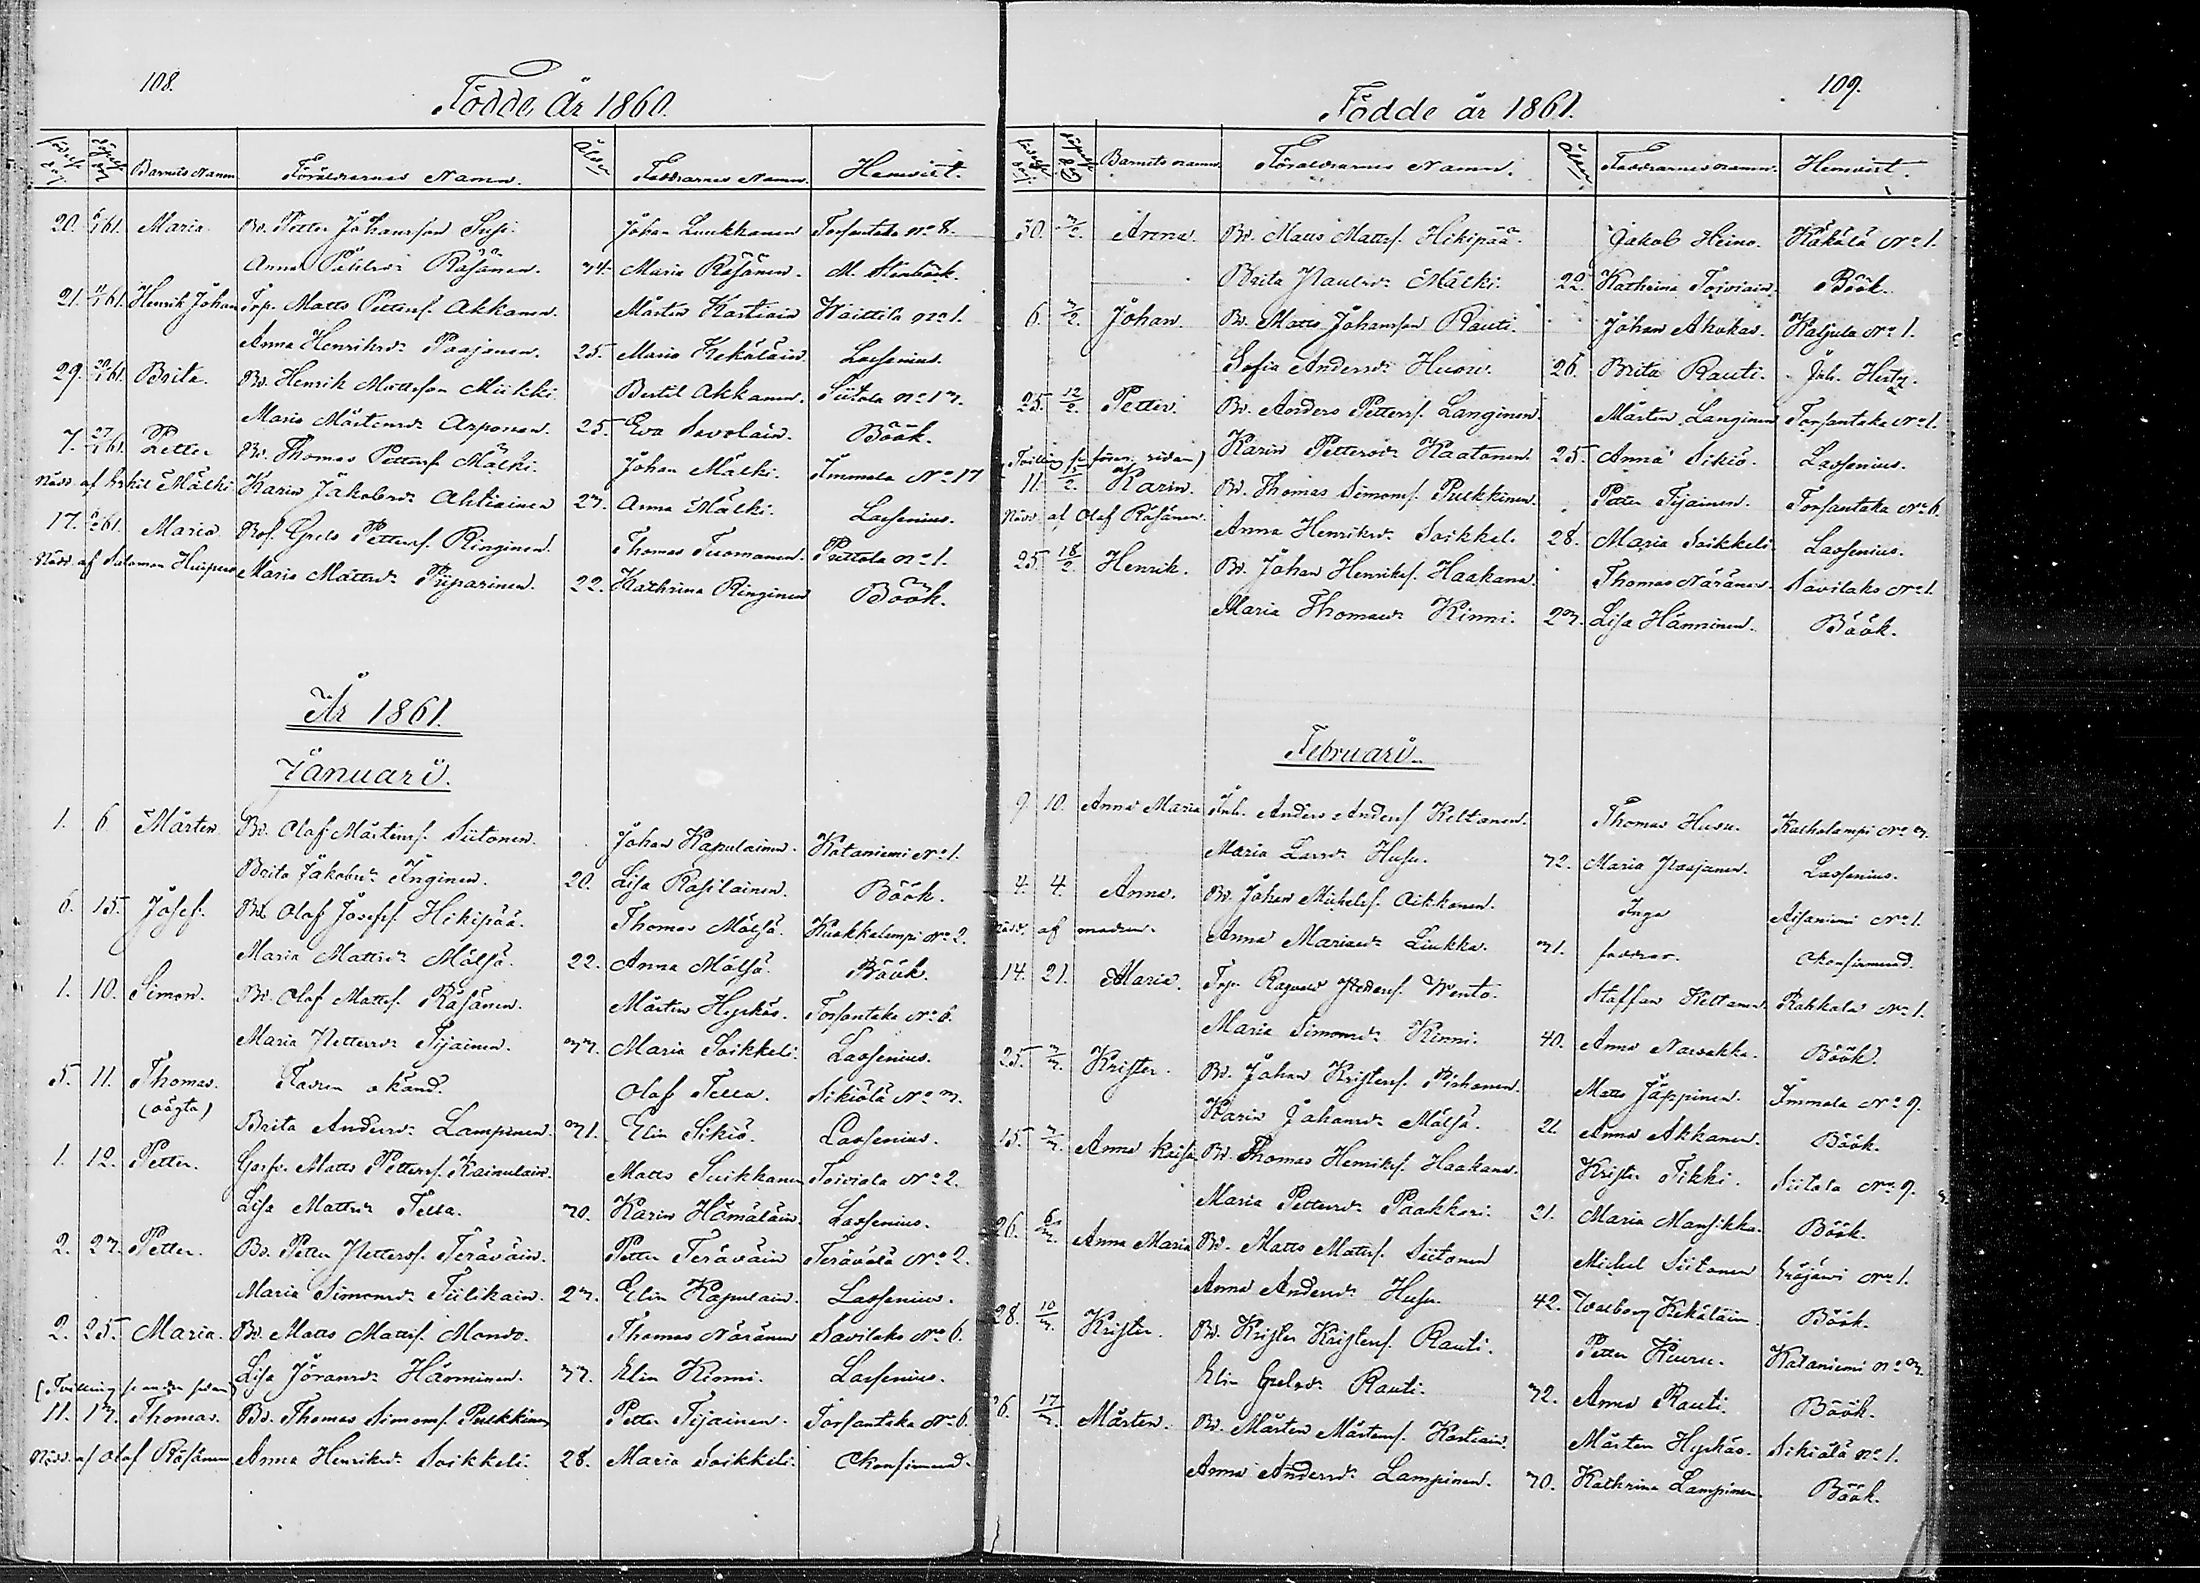 108.
Födde År 1860.
födelse dag döpelse dag Barnets Namn Föräldrarnes Namn. Ålder Faddrarnes Namn. Hemvist.
20. 6/1 61. Maria. Bd. Petter Johansson Susi. Johan Luukkanen Torsantaka No 8.
Anna Påhlsdr Räsänen. 34. Maria Räsänen. M. Stenbäck.
21. 61. Henrik Johan Torp. Matts Petterss. Akkanen. Mårten Kastiain Waittila No 1.
Anna Henriksdr Paajanen. 25. Maria Kekäläin Lassenius.
29. 20/1 61. Brita. Bd. Henrik Mattsson Miikki. Bertil Akkanen. Siitola No 13.
Maria Mårtensdr Asponen. 25. Eva Savolain. Böök.
7. 27/1 61. Petter Bd. Thomas Petterss. Mälki. Johan Mälki. Immola No 17
Nödd. af Eskil Mälki Karin Jakobsdr Ahtiainen 23. Anna Mälki. Lassenius.
17. 61. Maria Bd. Grels Petterss. Ringinen. Thomas Tuomanen. Pettola No 1.
Nödd. af Salomon Huupon Maria Mattsdr Piiparinen. 22. Kathrina Ringinen Böök.
År 1861.
Januari.
1. 6 Mårten. Bd. Olaf Mårtenss. Siitonen. Johan Kapulainen. Kataniemi No 1.
Brita Jakobsdr Inginen. 20. Lisa Rasilainen. Böök.
6. 15. Josef. Bd. Olaf Josefss. Hikipää. Thomas Mälsä. Kuokkalampi No 2.
Maria Mattsdr Mälsä. 22. Anna Mälsä. Böök.
1. 10. Simon. Bd. Olaf Mattss. Räsänen. Mårten Hyrkäs. Torsantaka No 6.
Maria Pettersdr Tijainen. 33. Maria Soikkeli. Lassenius.
5. 11. Thomas. Fadren okänd. Olaf Tella. Sikiölä No 3.
(oägta) Brita Andersdr Lampinen. 31. Elin Sikiö. Lassenius.
1. 12. Petter. Matts Petterss. Kainulain. Matts Suikkanen Toiviala No 2.
Lisa Mattsdr Tella. 30. Karin Hämäläin. Lassenius.
2. 23. Petter. Bd. Petter Petterss. Teräväin. Petter Teräväin Terävälä No 2.
Maria Simonsdr Tiilikain. 23. Elin Kapulain. Lassenius.
2. 25. Maria. Bd. Matts Mattss. Mondo. Thomas Näränen Savilaks No 6.
Lisa Göransdr Hänninen. 33. Elin Kinni. Lassenius.
(Tvilling se andra sidan)
11. 13. Thomas. Bd. Thomas Simonss. Pulkkinen Petter Tijainen. Torsantaka No 6.
Nödd. af Olaf Räsänen Anna Henriksdr Soikkeli. 28. Maria Soikkeli. Okonfirmerad.
109.
Födde år 1861.
födelse dag döpelse dag Barnets namn. Föräldrarnes Namn. Ålder Faddrarnes namn. Hemvist.
30. 3/2. Anna. Bd. Matts Mattss. Hikipää. Jakob Heino. Käkälä No 1.
Brita Paulsdr Mälki. 22. Kathrina Toiviain. Böök.
6. 3/2. Johan. Bd. Matts Johansson Rauti. Johan Ahokas. Kaljula No 1.
Sofia Andersdr Husu. 26. Brita Rauti. Joh. Hertz.
25. 12/2. Petter. Bd. Anders Petterss. Langinen. Mårten Langinen Torsantaka No 1.
(Tvilling se föreg. sidan) Karin Pettersdr Kaatonen. 25. Anna Sikiö. Lassenius.
11. 15/2. Karin. Bd. Thomas Simonss. Pulkkinen. Petter Tijainen. Torsantaka No 6.
Nödd. af Olaf Räsänen. Anna Henriksdr Soikkel. 28. Maria Soikkeli Lassenius.
25. 18/2. Henrik. Bd. Johan Henrikss. Haakana. Thomas Näränen. Savilaks No 1.
Maria Thomasdr Kinni. 23. Lisa Hänninen. Böök.
Februari.
9. 10. Anna Maria Inh. Anders Anderss Keltanen. Thomas Husu. No 3.
Maria Larsdr Husu. 32. Maria Paajanen. Lassenius.
4. 4. Anna. Bd. Johan Michelss. Aikkonen. Inga Aisaniemi No 1.
Nödd. af modren. Anna Mariasdr Liukka. 31. faddrar. Okonfirmerad.
14. 21. Maria. Torp. Ragvald Petterss. Wento. Staffan Keltanen. Rahkola No 1.
Maria Simonsdr Kinni. 40. Anna Naesakka. Böök.
25. 3/3. Krister. Bd. Johan Kristerss. Pirhonen. Matts Jäppinen. Immola No 9.
Karin Johansdr Mälsä. 21. Anna Akkanen. Böök.
15. 3/3. Anna Kaisa. Bd. Thomas Henrikss. Haakana. Krister Tikki. Siitola No 9.
Maria Pettersdr Paakkari. 21. Maria Mansikka. Böök.
26. 6/3. Anna Maria Bd. Matts Mattss. Siitonen Michel Siitonen Eräjärvi No 1.
Anna Andersdr Husu. 42. Walborg Kekäläin. Böök.
28. 10/3. Krister. Bd. Krister Kristerss. Rauti. Petter Kiuru. Kataniemi No 3.
Elin Grelsdr Rauti. 32. Anna Rauti. Böök.
26. 17/3. Mårten. Bd. Mårten Mårtenss. Kastiain. Mårten Hyrkäs. Sikiölä No 1.
Anna Andersdr Lampinen. 30. Kathrina Lampinen. Böök.